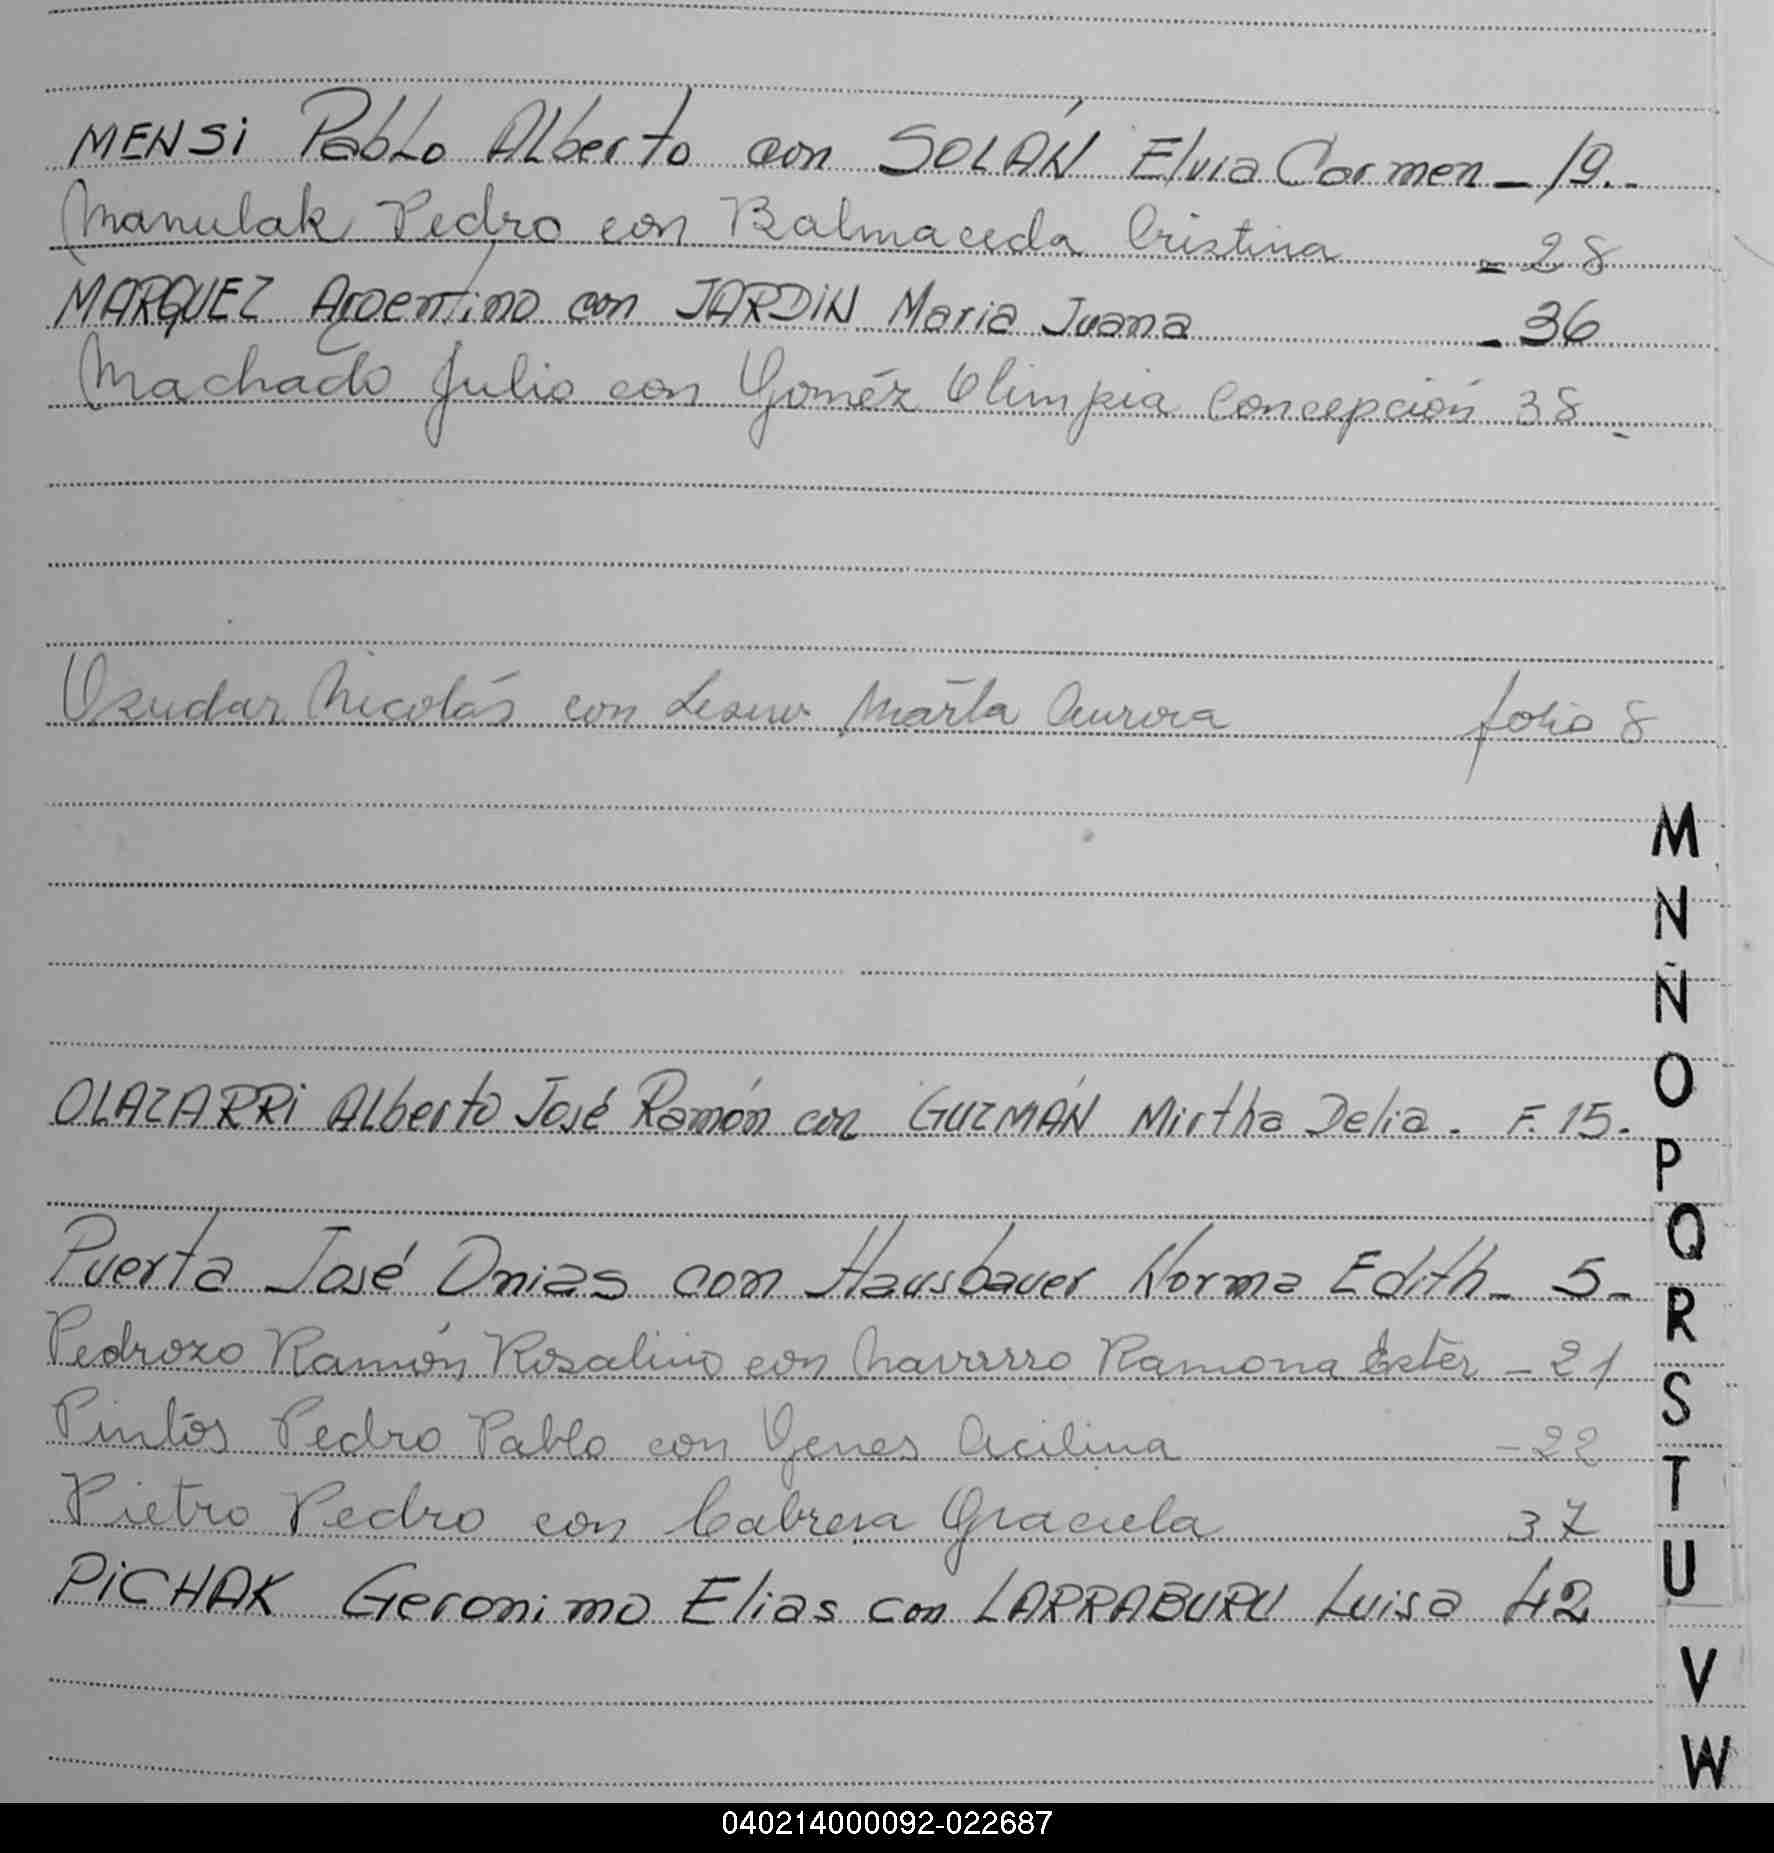 MENSi Pablo Alberto con SOLÁN Elvia Carmen - 19.-
Manulak Pedro con Balmaceda Cristina - 28
MARQUEZ Argentino con JARDiN Maria Juana - 36
Machado Julio con Goméz Olimpia Concepción 38 -
Nicolás con Marta Aurora folio 8
OLAZARRi Alberto José Ramón con GUZMÁN Mirtha Delia. F. 15.
Puerta José Onias con Hausbauer Norma Edith - 5 -
Pedrozo Ramón Rosalino con Navarro Ramona Ester - 21
Pintos Pedro Pablo con Yenes Acilina - 22
Pietro Pedro con Cabrera Graciela 37
PiCHAK Geronimo Elias con LARRABURU Luisa 42
M
N
Ñ
O
P
Q
R
S
T
U
V
W
040214000092-022687